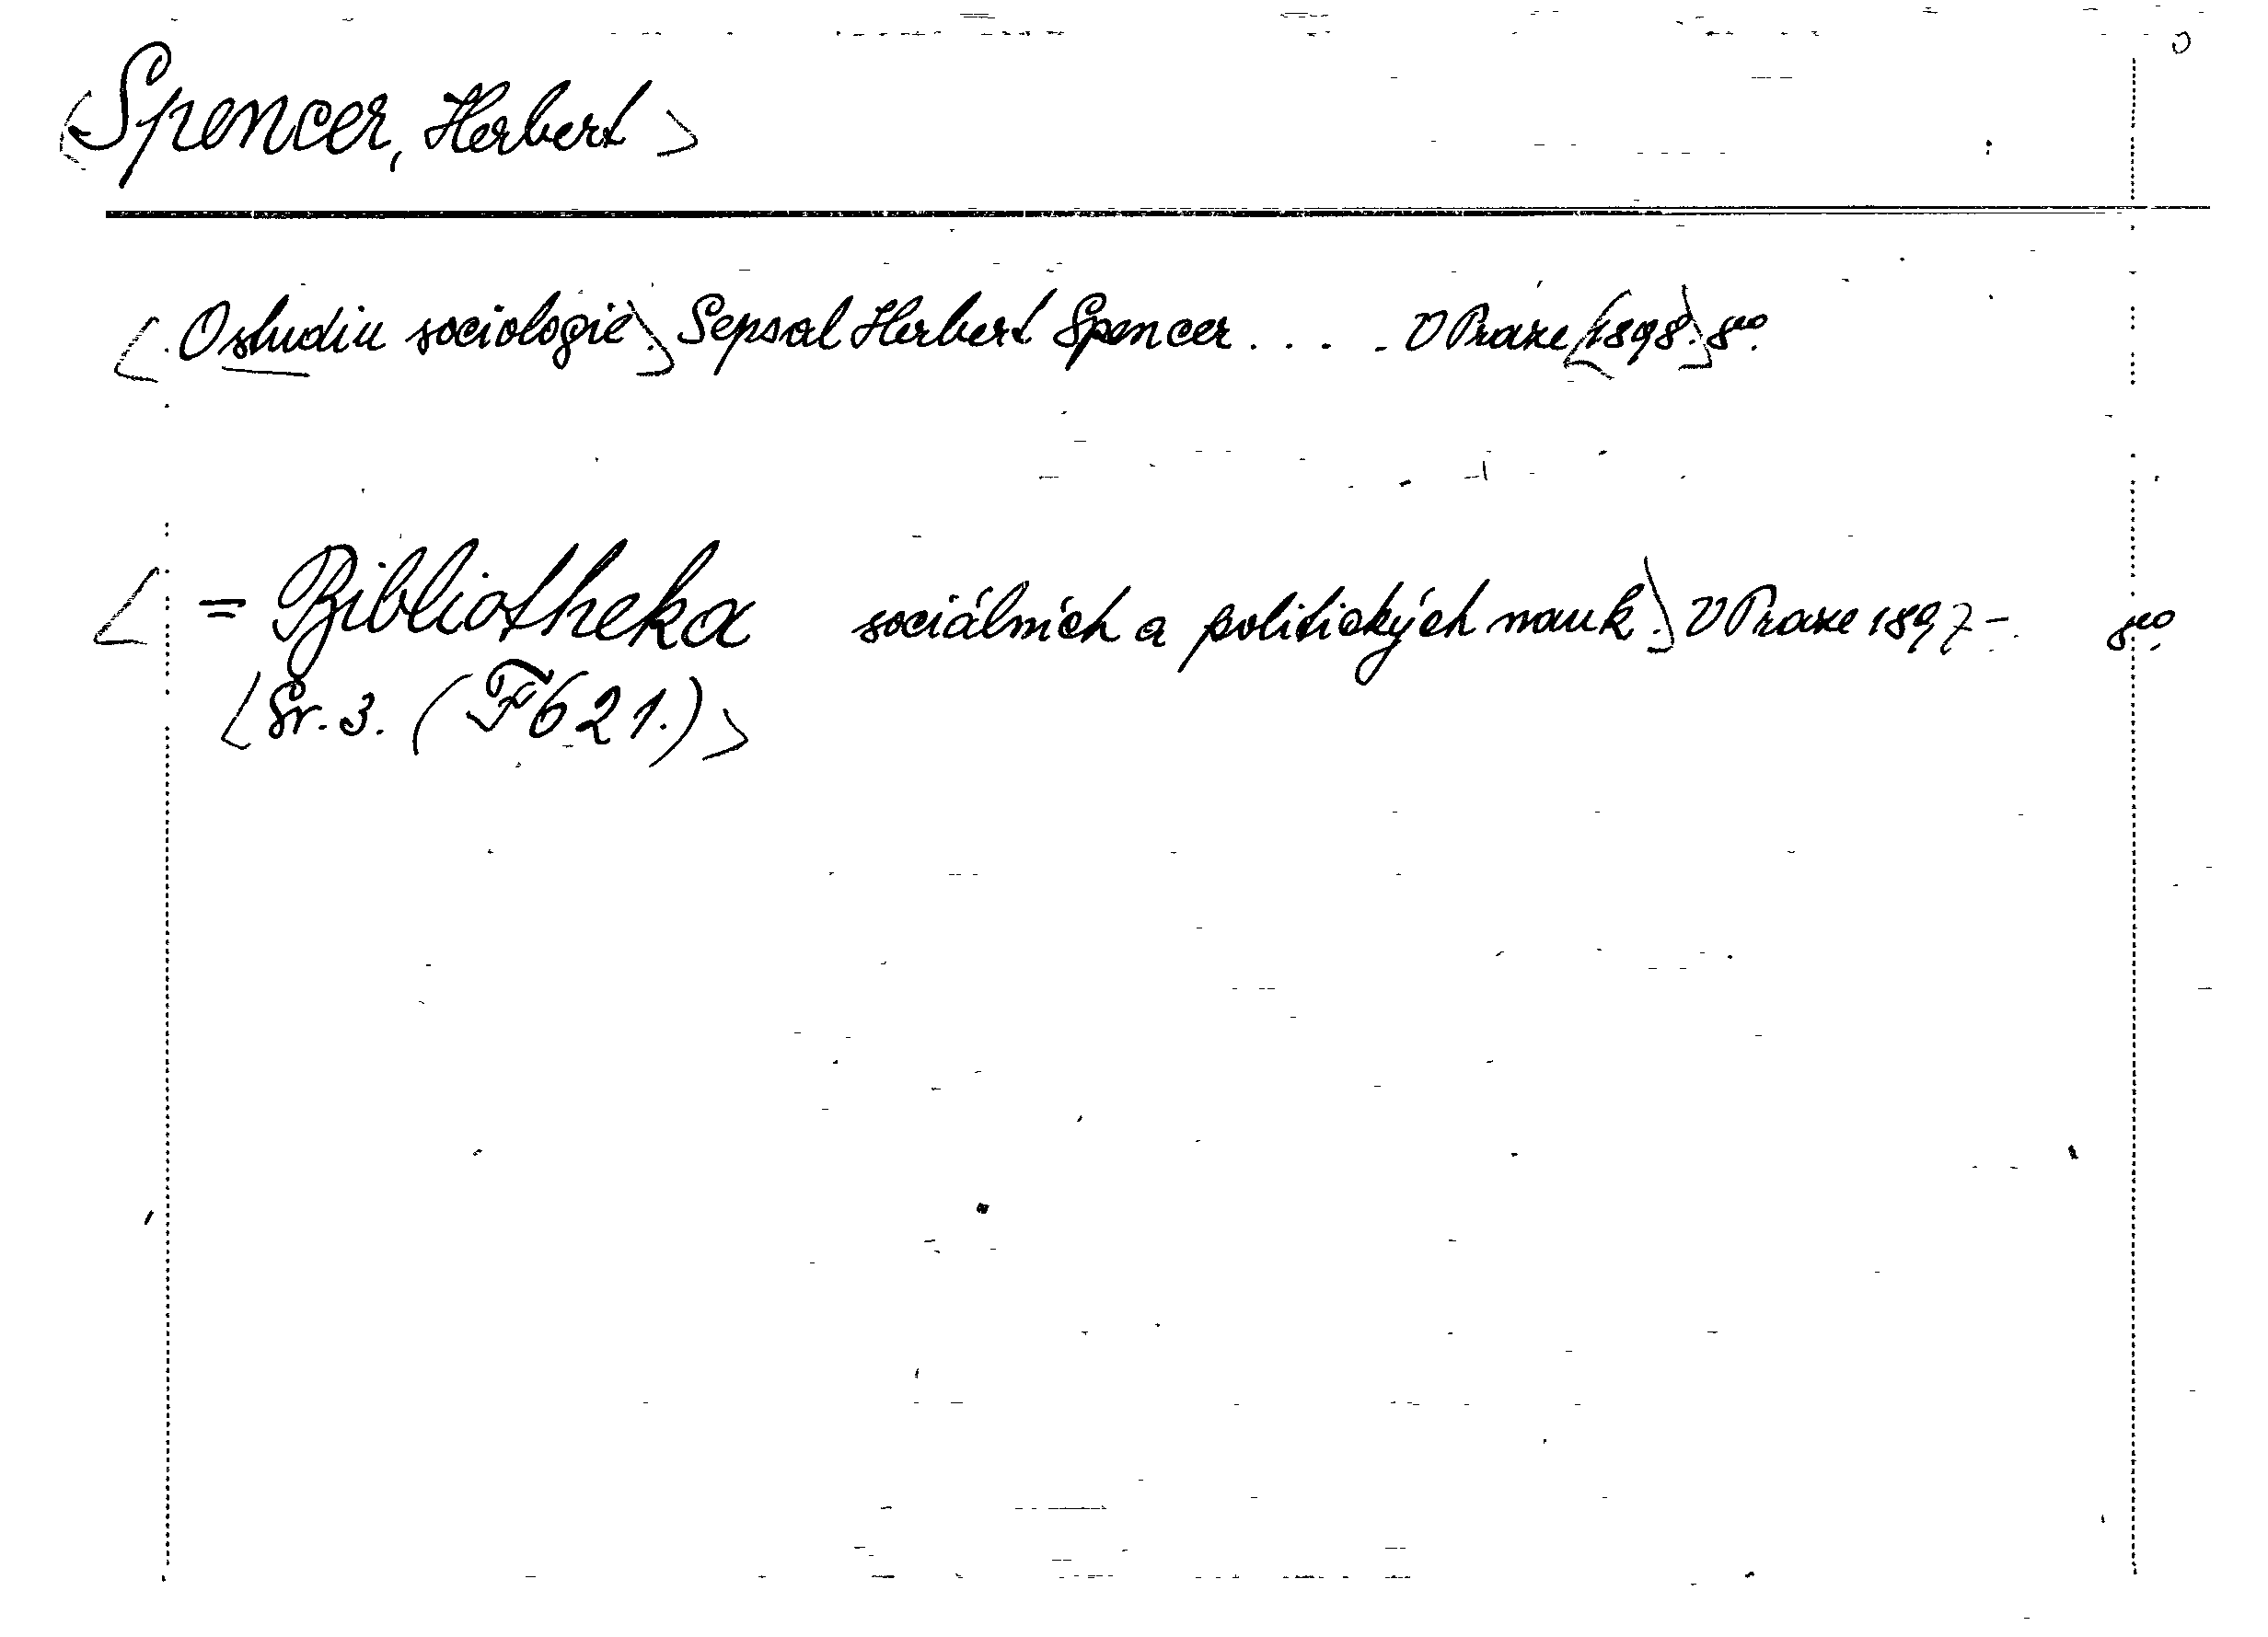 <Spencer, Herbert>
<O studiu sociologie.> Sepsal Herbert Spencer . . . . V Praze <1898.> 8vo.
<= Bibliotheka sociálních a politických nauk.> V Praze 1897-. 8vo.
<Sv. 3. (F 621.)>